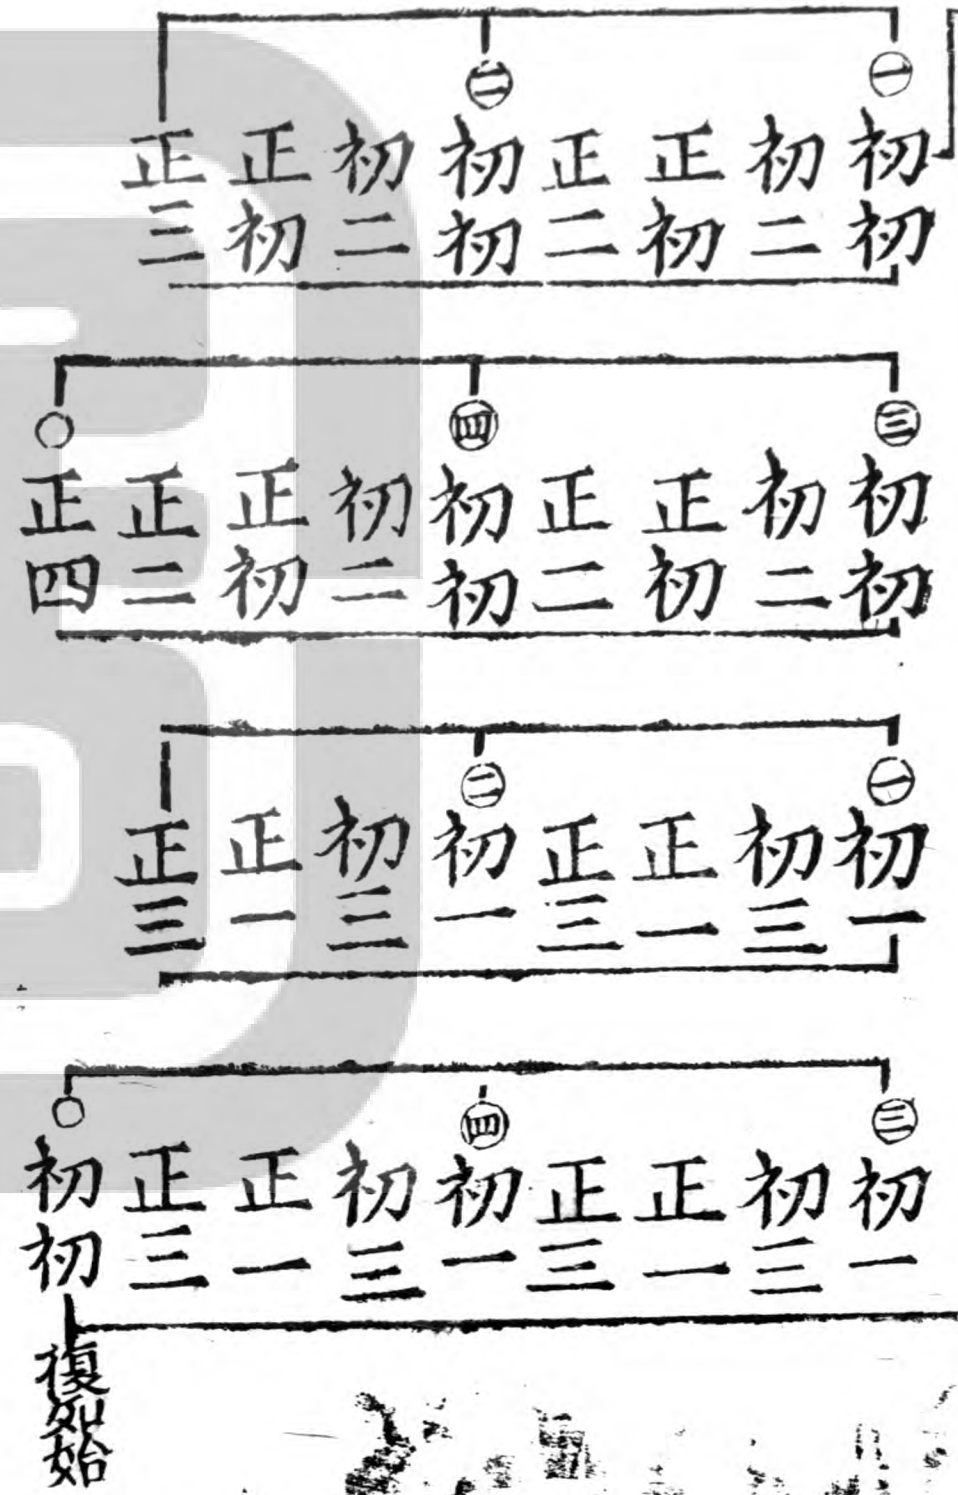 ㊀初初
初二
正初
正二
㊁初初
初二
正初
正三
㊂初初
初二
正初
正二
㊃初初
初二
正初
正二
○正四
㊀初一
初三
正一
正三
㊁初一
初三
正一
正三
㊂初一
初三
正一
正三
㊃初一
初三
正一
正三
○初初
復如始